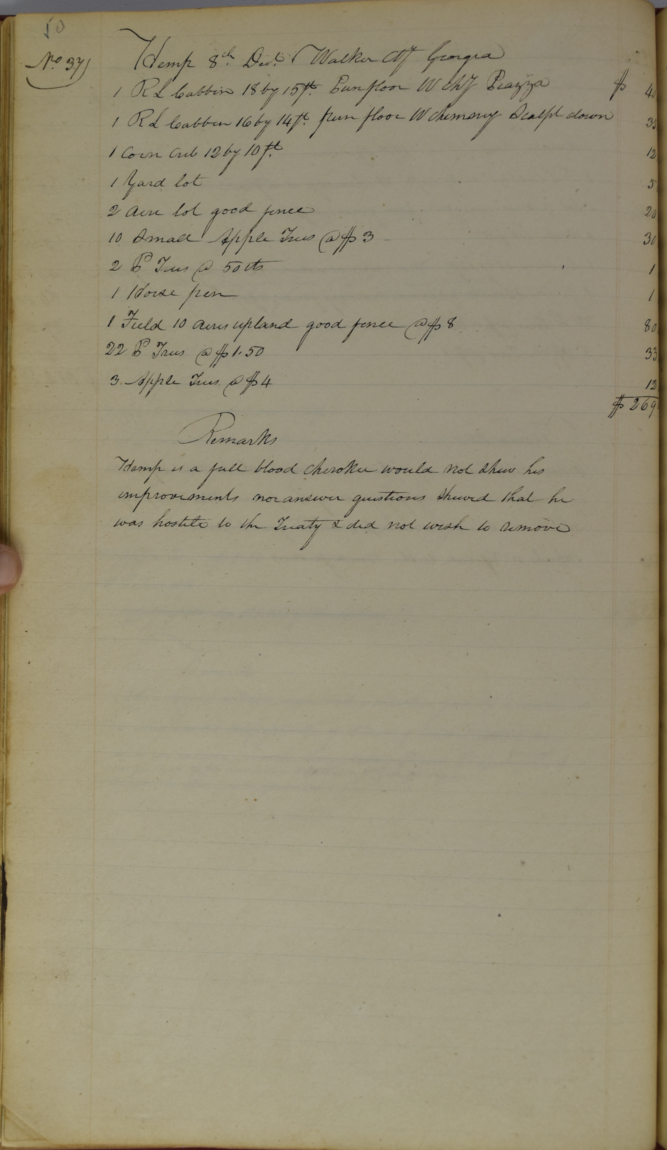 50
No 37
Hemp 8th Dist Walker Cty Georgia
1 R L Cabbin 18 by 15 ft. Punfloor W chy Piazza $ 4
1 R L Cabbin 16 by 14 ft pun floor W chimny Scalpt down 35
1 Corn crib 12 by 10 ft 12
1 Yard lot 5
2 acre lot good fence 20
10 Small Apple Trees @ $3 30
2 P Trees @ 50 cts 1
1 Horse pen 1
1 Field 10 acres upland good fence @ $8 80
22 P Trees @ $1.50 33
3 Apple Trees @ $4 12
$ 269
Remarks
Hemp is a full blood cherokee would not shew his
improvements nor answer questions Shewed that he
was hostile to the Treaty & did not wish to remove